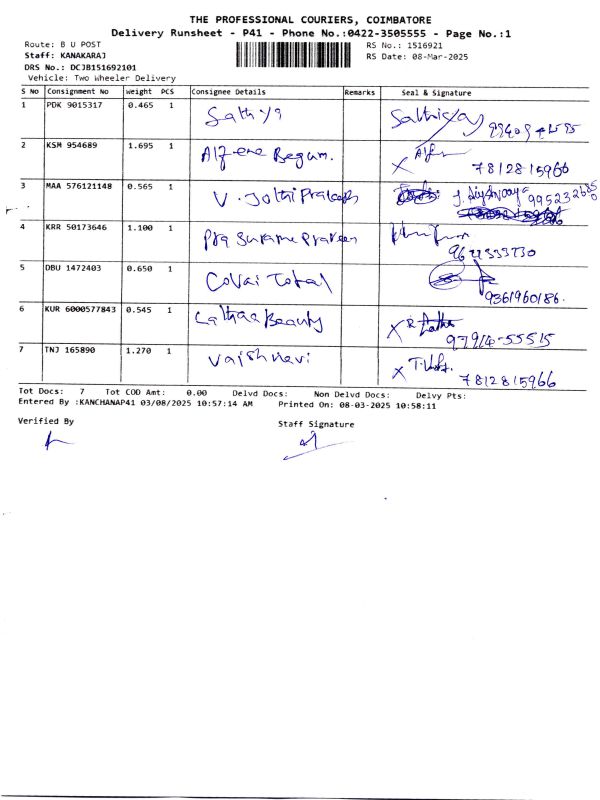 THE PROFESSIONAL COURIERS, COIMBATORE
Delivery Runsheet - P41 - Phone No.:0422-3505555 - Page No.:1
Route: B U POST RS No.: 1516921
Staff: KANAKARAJ RS Date: 08-Mar-2025
DRS No.: DCJB151692101
Vehicle: Two Wheeler Delivery
S No Consignment No weight PCS Consignee Details Remarks Seal & Signature
1 PDK 9015317 0.465 1 Sathya
2 KSM 954689 1.695 1 Begum. 7812815966
3 MAA 576121148 0.565 1 V. Jothi Prakash
4 KRR 50173646 1.100 1 Praveen
5 DBU 1472403 0.650 1 Covai Total 9361960186.
6 KUR 6000577843 0.545 1 Lathaa Beauty 97914-55515
7 TNJ 165890 1.270 1 Vaishnavi 7812815966
Tot Docs: 7 Tot COD Amt: 0.00 Delvd Docs: Non Delvd Docs: Delvy Pts:
Entered By :KANCHANAP41 03/08/2025 10:57:14 AM Printed On: 08-03-2025 10:58:11
Verified By Staff Signature